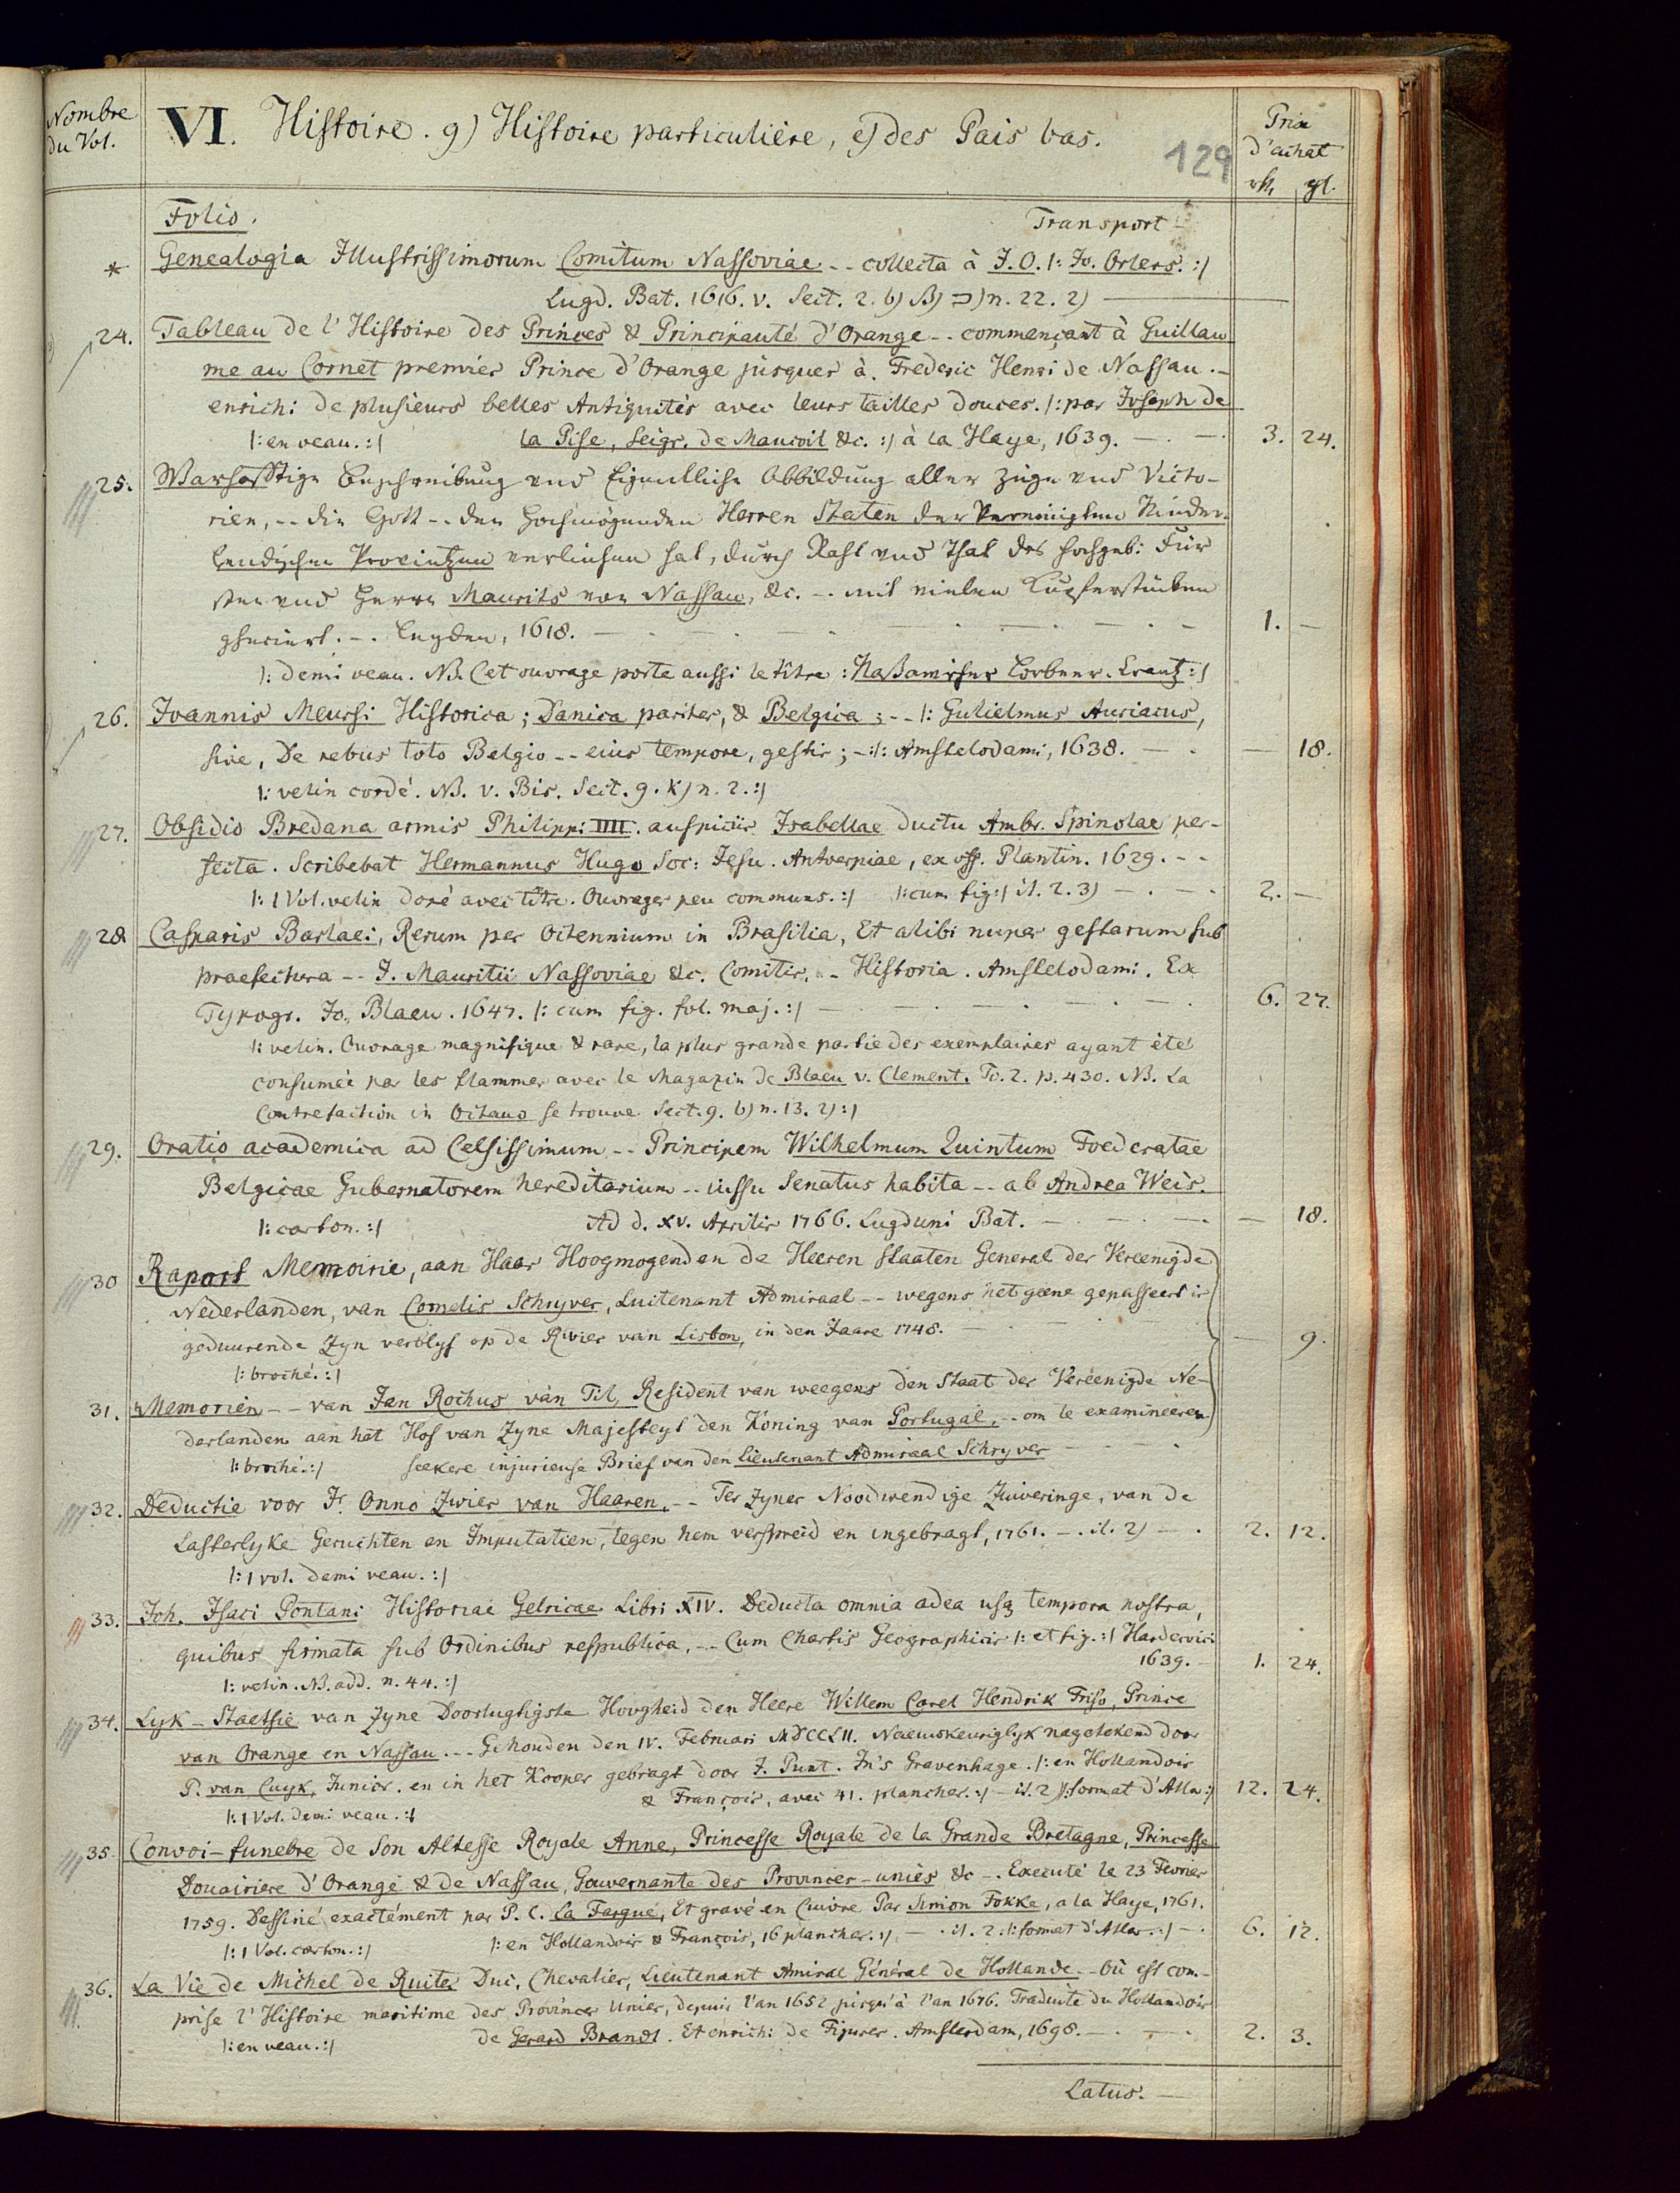 Nombre du Vol.
VI. Histoire. g) Histoire particulière, e) des Pais bas.
129
Prix d'achat
rth. gl.
Folio. Transport -
* Genealogia Illustrissimorum Comitum Nassoviae -- collecta à J.O. |: Jo. Orlers. :|
Lugd. Bat. 1616. v. Sect. 2. b) ß) n. 22. 2) —
24. Tableau de l'Histoire des Princes & Principauté d'Orange -- commençant à Guillau
me au Cornet premier Prince d'Orange jusques à Frederic Henri de Nassau. -
enrichi de plusieurs belles Antiquités avec leurs tailles douces. |: par Joseph de
|: en veau. :| la Pise, Seigr. de Maucoil &c. :| à la Haye, 1639. — . — . 3. 24.
25. Warhafftige Beschreibung und Eigentliche Abbildung aller Züge und Victo-
rien, -- die Gott -- den Hochmögenden Herren Staten der Vereinigten Nider-
lendischen Provintzen verliehen hat, durch Raht und That des hochgeb: Für
sten und Herrn Maurits von Nassau, &c. -- mit vielen Kupferstücken
gheziert. -. Leyden, 1618. — . — . — . — . — . — 1. —
|: demi veau. NB. Cet ouvrage porte aussi le titre : Naßawischer Lorbeer-Crantz :|
26. Joannis Meursi Historica; Danica pariter, & Belgica; -- |: Gulielmus Auriacus,
sive, De rebus toto Belgio -- eius tempore, gestis; -:|: Amstelodami, 1638. — . — 18.
|: velin cordé. NB. v. Bis. Sect. 9. k) n. 2. :|
27. Obsidio Bredana armis Philippi IIII. auspiciis Isabellae ductu Ambr. Spinolae per-
fecta. Scribebat Hermannus Hugo Soc: Jesu. Antverpiae, ex off. Plantin. 1629. --
|: 1 Vol. velin doré avec titre. Ouvrages peu communs. :| |: cum fig :| it. 2. 3) — . — . 2. —
28 Casparis Barlaei, Rerum per Octennium in Brasilia, Et alibi nuper gestarum sub
praefectura -- J. Mauritii Nassoviae &c. Comitis, -- Historia. Amstelodami. Ex
Typogr. Jo. Blaeu. 1647. |: cum fig. fol. maj. :| — . — . — . — . — . 6. 27.
|: velin. Ouvrage magnifique & rare, la plus grande partie des exemplaires ayant été
consumée par les flammes avec le Magazin de Blaeu v. Clement. To. 2. p. 430. NB. La
Contrefaction in Octavo se trouve Sect. 9. b) n. 13. 2) :|
29. Oratio academica ad Celsissimum -- Principem Wilhelmum Quintum Foederatae
Belgicae Gubernatorem hereditarium -- iussu Senatus habita -- ab Andrea Weis.
|: carton. :| Ad d. XV. Aprilis 1766. Lugduni Bat. — . — . — . — 18.
30 Raport Memoirie, aan Haar Hoogmogenden de Heeren Staaten General der Vereenigde
Nederlanden, van Cornelis Schryver, Luitenant Admiraal -- wegens het geene gepasseert is
geduurende Zyn verblyf op de Rivier van Lisbon, in den Jaare 1748. — . — . — 9.
|: broché. :|
31. Memorien -- van Jan Rochus van Til, Resident van weegens den Staat der Vereenigde Ne-
derlanden aan het Hof van Zyne Majesteyt den Koning van Portugal, -- om te examineeren
|: broché. :| seekere injurieuse Brief van den Lieutenant Admiraal Schryver — . — .
32. Deductie voor Jr. Onno Zwier van Haaren, -- Ter Zyner Noodwendige Zuiveringe, van de
Lasterlyke Geruchten en Imputatien, tegen hem verspreid en ingebragt, 1761. -. it. 2) — . 2. 12.
|: 1 vol. demi veau. :|
33. Joh. Isaci Pontani Historiae Gelricae Libri XIV. Deducta omnia ad ea usq tempora nostra,
quibus firmata sub Ordinibus respublica, -- Cum Chartis Geographicis |: et fig. :| Hardervici
1639. - 1. 24.
|: velin. NB. add. n. 44. :|
34. Lyk-Staetsie van Zyne Doorlugtigste Hoogheid den Heere Willem Carel Hendrik Friso, Prince
van Orange en Nassau. -- Gehouden den IV. Februari MDCCLII. Naeuwkeuriglyk nagetekend door
P. van Cuyk, Junior. en in het Kooper gebragt door J. Punt. In's Gravenhage. |: en Hollandois
& François, avec 41. planches. :| - it. 2 |: format d'Atla :| 12. 24.
|: 1 Vol. demi veau. :|
35. Convoi-funebre de Son Altesse Royale Anne, Princesse Royale de la Grande Bretagne, Princesse
Douairiere d'Orange & de Nassau, Gouvernante des Provinces-uniés &c -. Executé le 23 Fevrier
1759. Dessiné exactément par P. C. La Fargue, Et gravé en Cuivre Par Simon Fokke, a la Haye, 1761.
|: 1 Vol. carton. :| |: en Hollandois & François, 16 planches. :| — . it. 2. |: format d'Atlas. :| - . 6. 12.
36. La Vie de Michel de Ruiter Duc, Chevalier, Lieutenant Amiral Général de Hollande -- Où est com-
prise l'Histoire maritime des Provinces Unies, depuis l'an 1652 jusqu'à l'an 1676. Traduite du Hollandois
|: en veau. :| de Gerard Brandt. Et enrichi de Figures. Amsterdam, 1698. — . — . 2. 3.
Latus. —